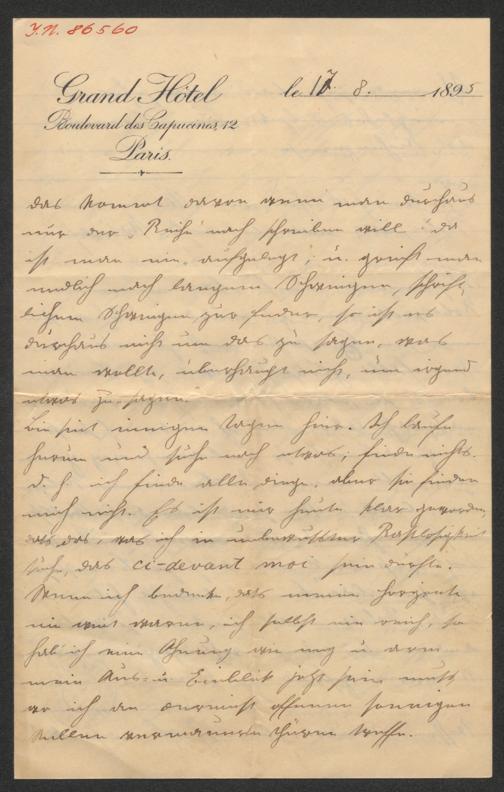 J.N. 86560
Grand Hôtel
Boulevard des Capucines, 12
Paris.
le 17. 8. 1895
das kommt davon wenn man durchaus
nur der „Reihe“ nach schreiben will. da
ist man nie „aufgelegt“, u. greift man
endlich nach langem Schweigen, schrift-
lichem Schweigen zur Feder, so ist es
durchaus nicht um das zu sagen, was
man wollte, überhaupt nicht, um irgend
etwas zu sagen.
Bin seit einigen Tagen hier. Ich laufe
herum und suche nach etwas, finde nichts.
d. h. ich finde alle Dinge, aber sie finden
mich nicht. Es ist mir heute klar geworden,
dass das, was ich in unbewusster Rastlosigkeit
suche, das ci-devant moi sein dürfte.
Wenn ich bedenke, dass meine Horizonte
nie weit waren, ich selbst nie reich, so
hab ich eine Ahnung wie eng u. arm
mein Aus- u. Einblick jetzt sein muss,
wo ich an zumeist offenen sonnigen
Stellen vermauerte Thüren treffe.